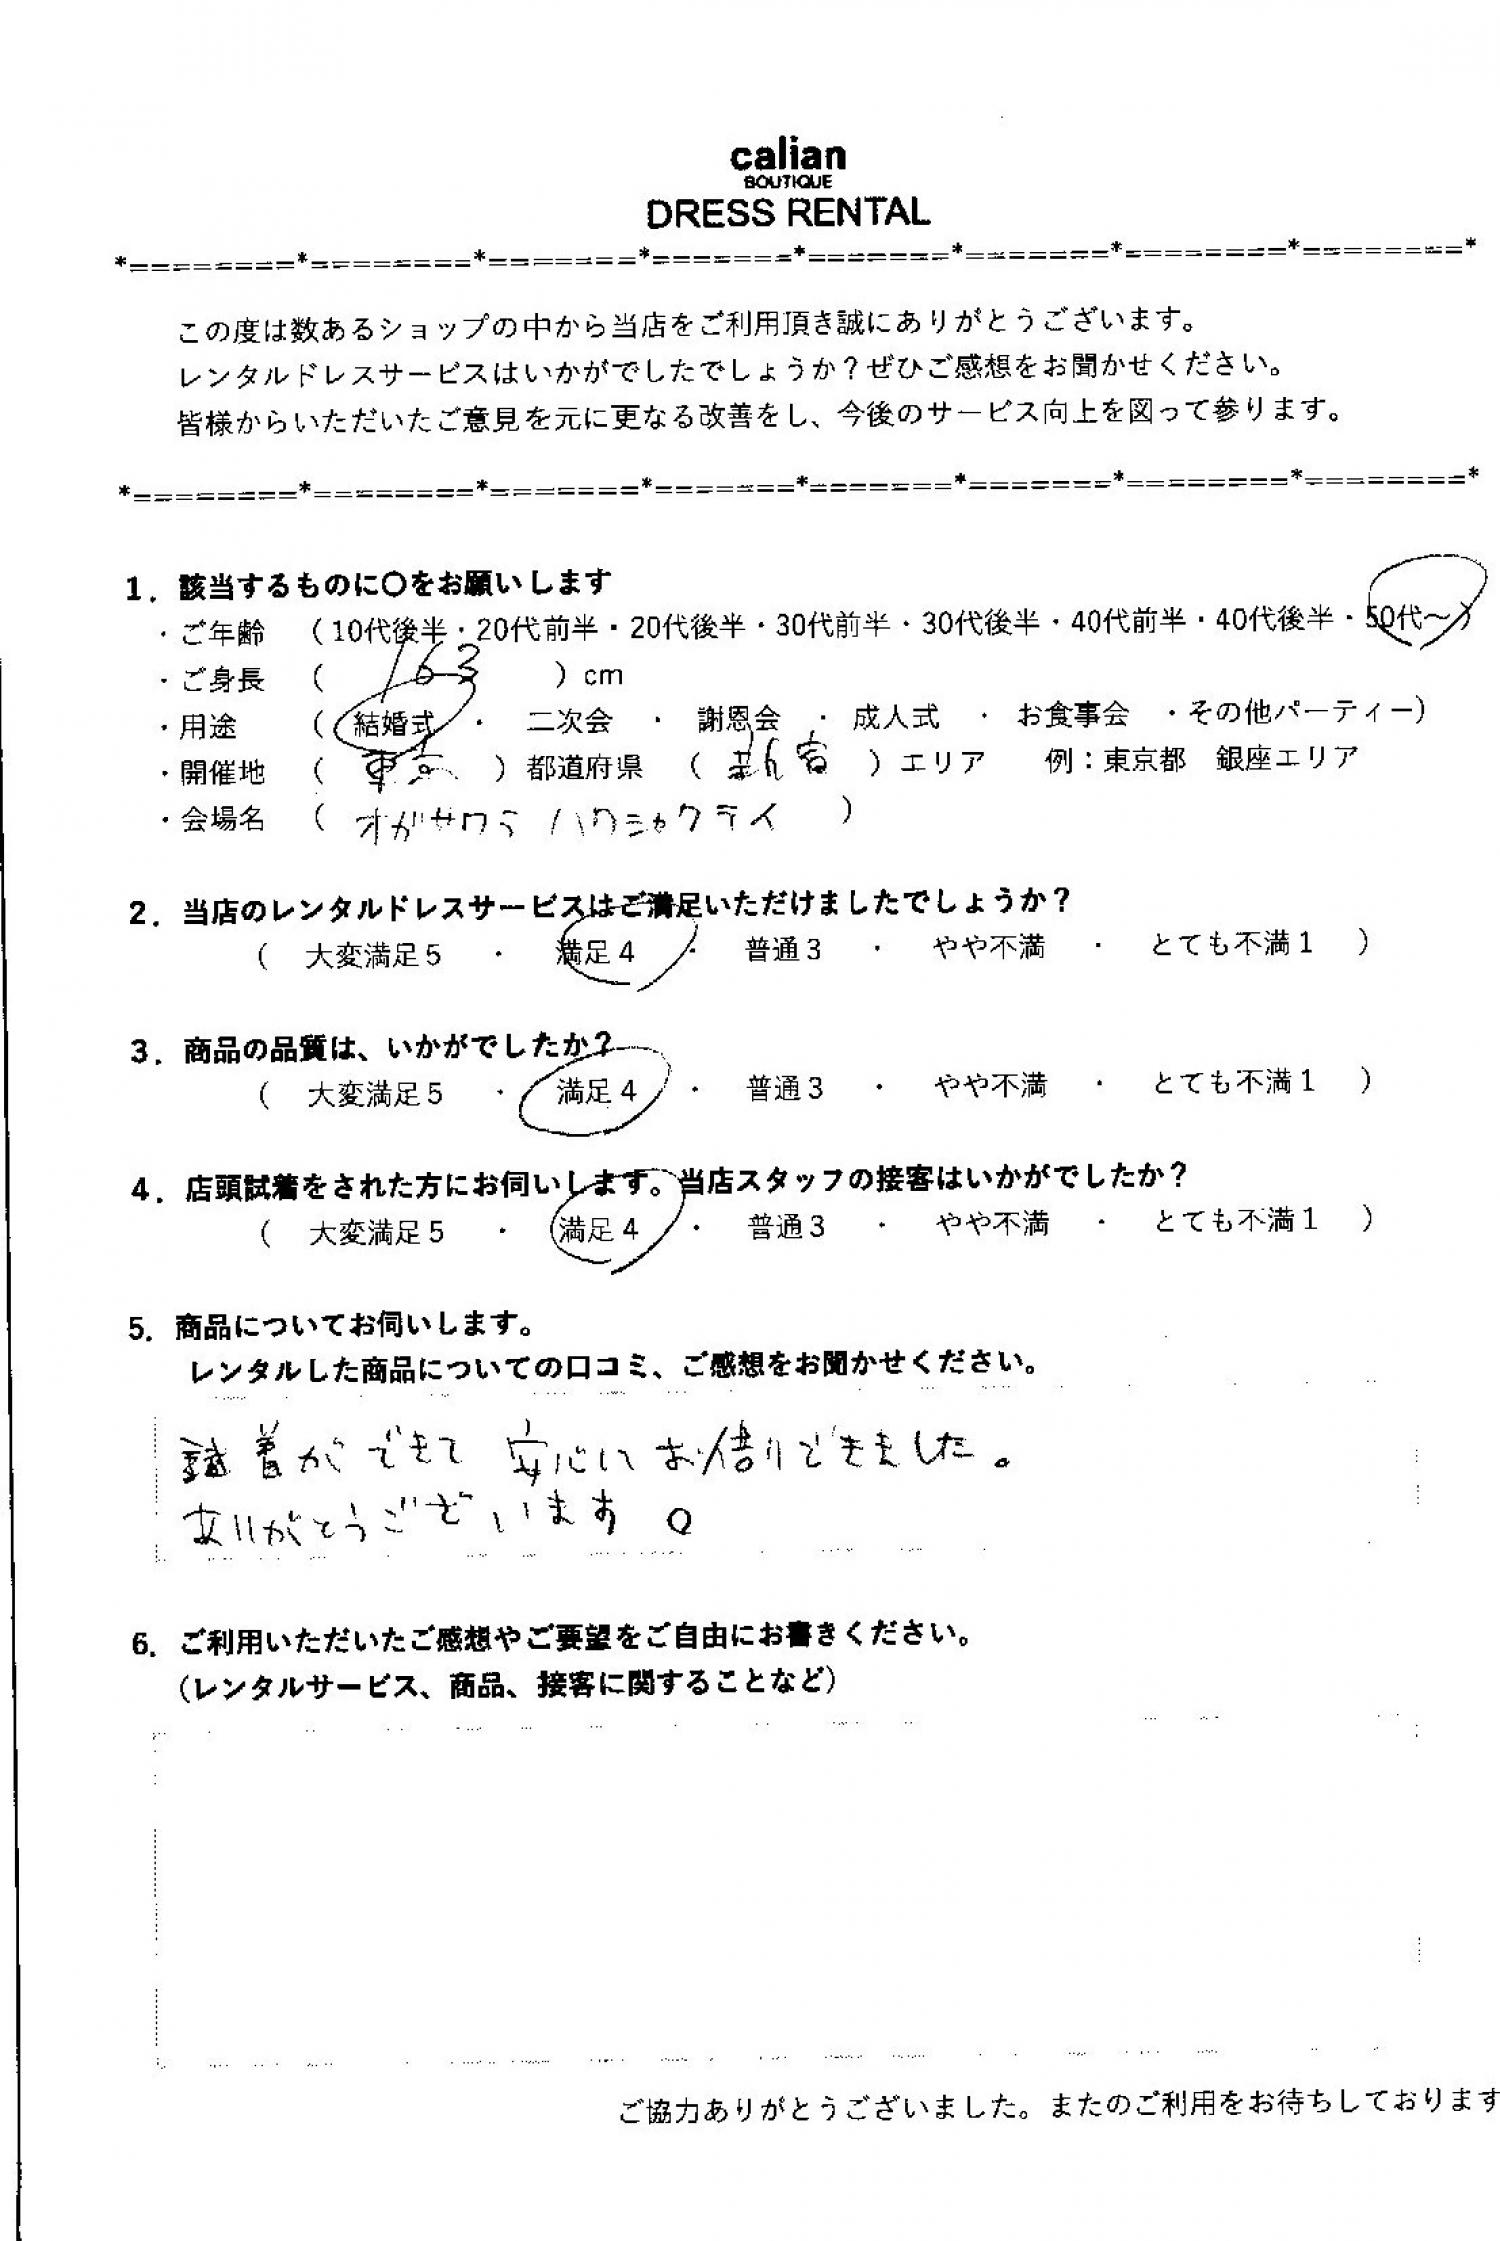 calian
BOUTIQUE
DRESS RENTAL
*========*========*=======*=======*=======*=======*========*========*
この度は数あるショップの中から当店をご利用頂き誠にありがとうございます。
レンタルドレスサービスはいかがでしたでしょうか？ぜひご感想をお聞かせください。
皆様からいただいたご意見を元に更なる改善をし、今後のサービス向上を図って参ります。
*========*========*=======*=======*=======*=======*========*========*
1．該当するものに〇をお願いします
・ご年齢 （10代後半・20代前半・20代後半・30代前半・30代後半・40代前半・40代後半・50代～）
・ご身長 （ 163 ）cm
・用途 （ 結婚式 ・ 二次会 ・ 謝恩会 ・ 成人式 ・ お食事会 ・その他パーティー）
・開催地 （ 東京 ）都道府県 （ 新宿 ）エリア 例：東京都 銀座エリア
・会場名 （ オガサワラ ハクシャクテイ ）
2．当店のレンタルドレスサービスはご満足いただけましたでしょうか？
（ 大変満足５ ・ 満足４ ・ 普通３ ・ やや不満 ・ とても不満１ ）
3．商品の品質は、いかがでしたか？
（ 大変満足５ ・ 満足４ ・ 普通３ ・ やや不満 ・ とても不満１ ）
4．店頭試着をされた方にお伺いします。当店スタッフの接客はいかがでしたか？
（ 大変満足５ ・ 満足４ ・ 普通３ ・ やや不満 ・ とても不満１ ）
5．商品についてお伺いします。
レンタルした商品についての口コミ、ご感想をお聞かせください。
試着ができて 安心してお借りできました。
ありがとうございます。
6．ご利用いただいたご感想やご要望をご自由にお書きください。
（レンタルサービス、商品、接客に関することなど）
ご協力ありがとうございました。またのご利用をお待ちしております